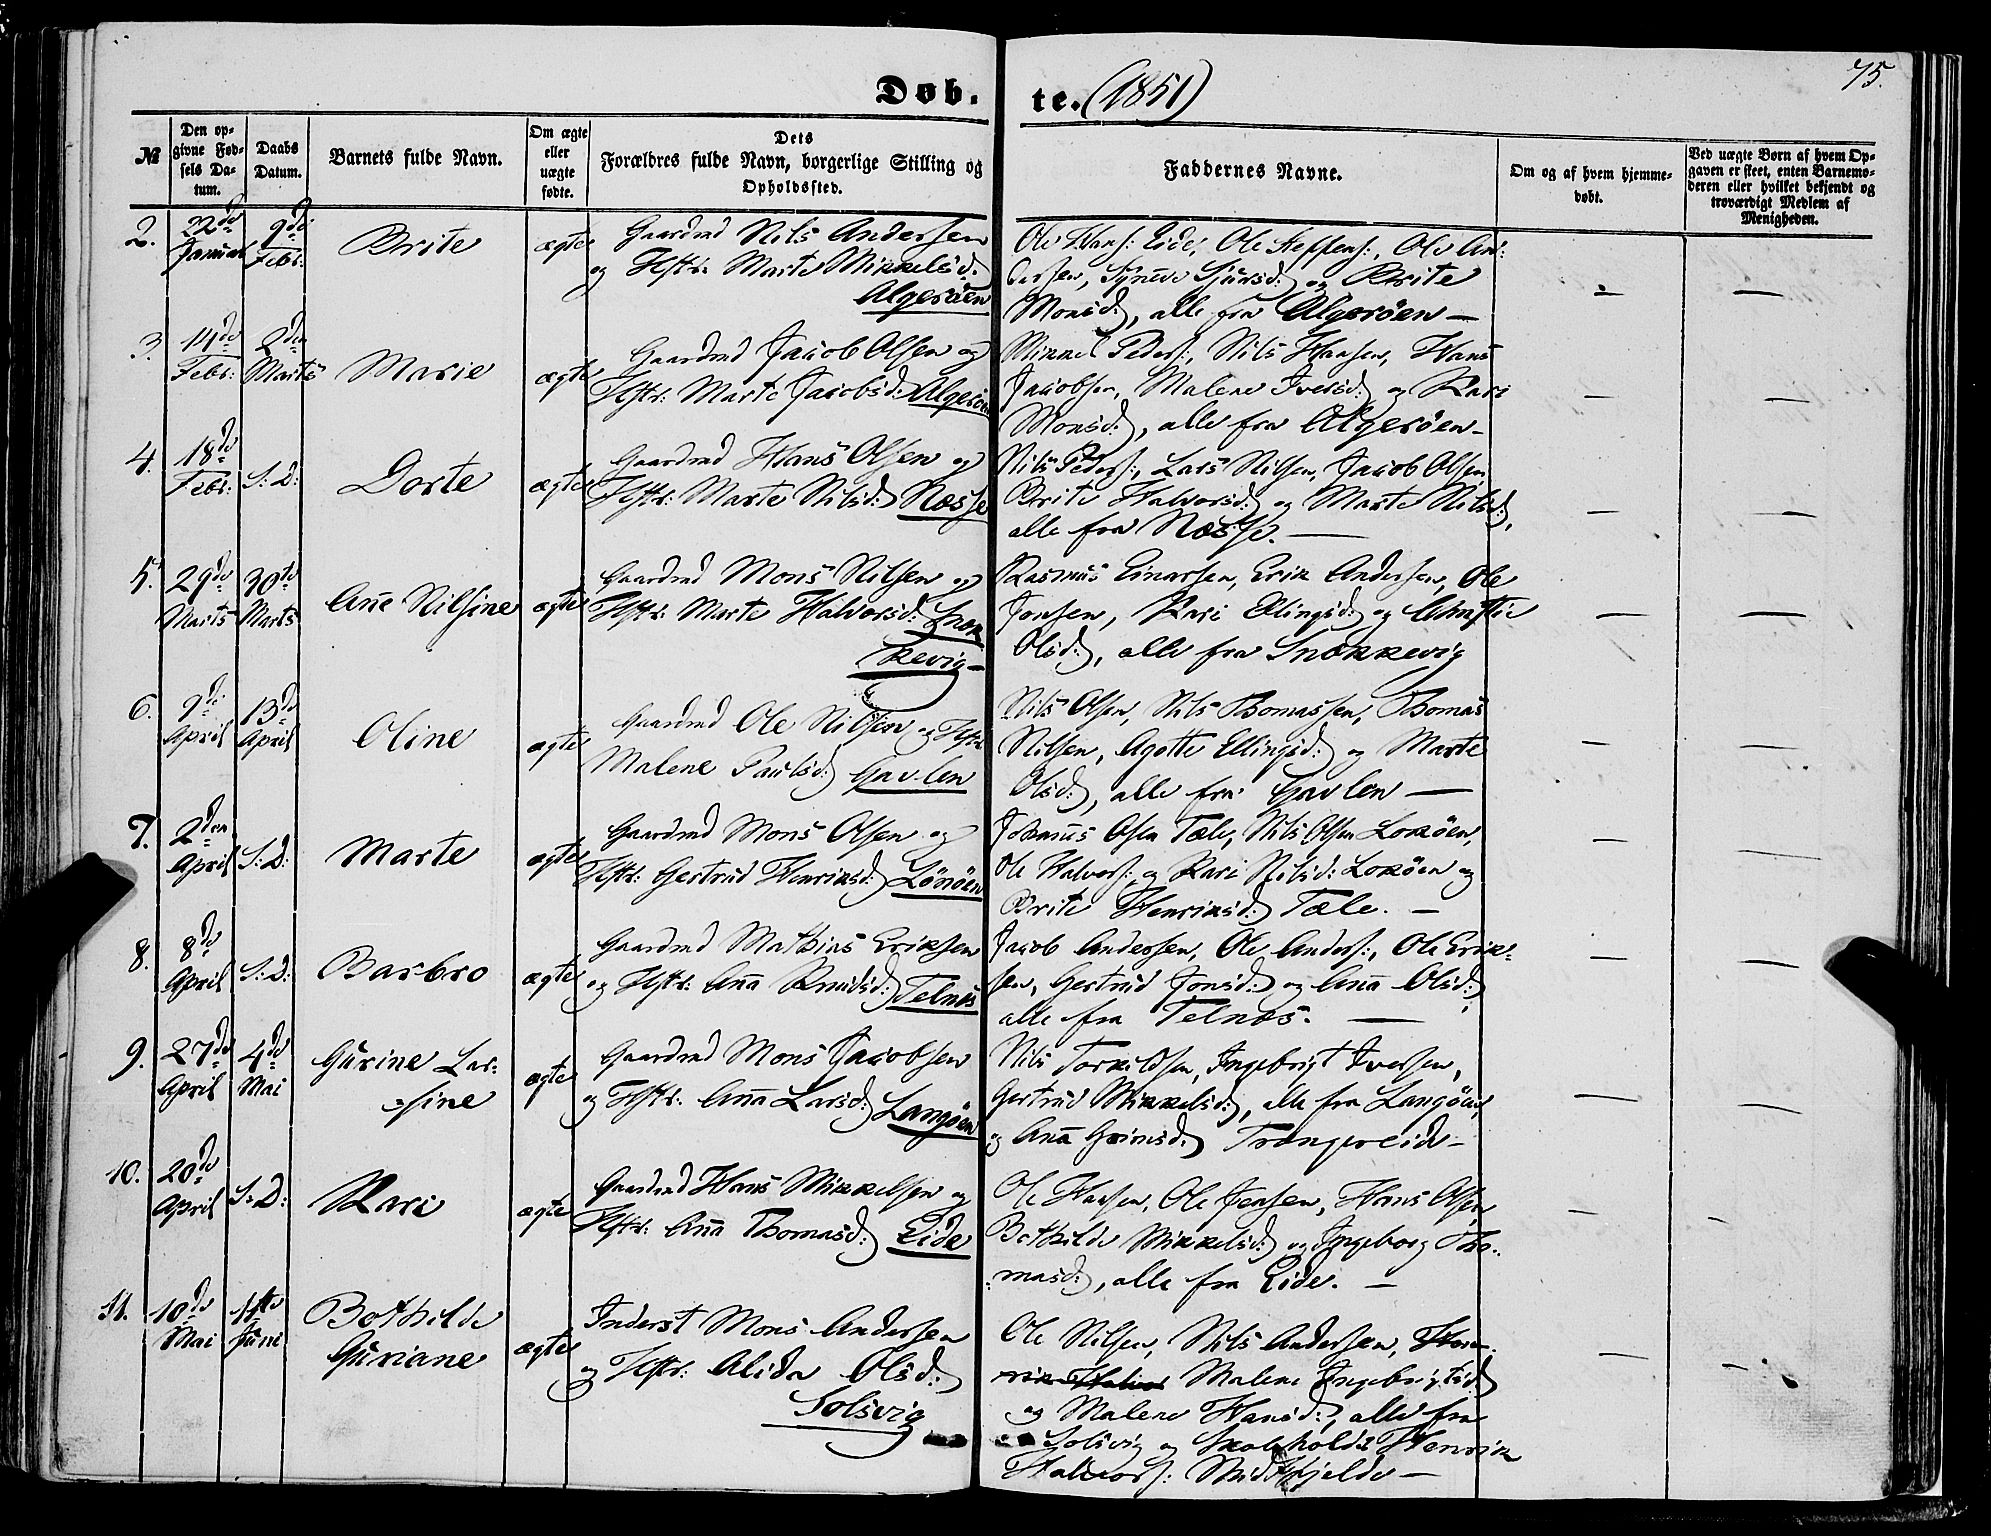 75.
Døb. te. (1851)
№
Den opgivne Fødsels Datum.
Daabs Datum.
Barnets fulde Navn.
Om ægte eller uægte fødte.
Dets Forældres fulde Navn, borgerlige Stilling og Opholdssted.
Faddernes Navne.
Om og af hvem hjemmedøbt.
Ved uægte Børn af hvem Opgaven er skeet, enten Barnemoderen eller hvilket bekjendt og troværdigt Medlem af Menigheden.
2. 22de Januar 9de Febr: Brite ægte
Gaardmd Nils Andersen
og Hstr: Marte Mikkelsd:
Algerøen
Ole Hans: Eide, Ole Steffens:, Ole An:
dersen, Synneve Sjursd: og Brite
Monsd:, alle fra Algerøen —
3. 14de Febr: 2den Marts Marie ægte
Gaardmd Jacob Olsen og
Hstr: Marte Jacobsd: Algerøen
Mikkel Peders:, Nils Hansen, Hans
Jacobsen, Malene Iversd: og Kari
Monsd:, alle fra Algerøen —
4. 18de Febr: S: D: Dorte ægte
Gaardmd Hans Olsen og
Hstr: Marte Nilsd: Næsse
Nils Peders:, Lars Nilsen, Jacob Olsen
Brite Halvorsd: og Marte Nilsd:,
alle fra Næsse. —
5. 29de Marts 30te Marts Ane Nilsine ægte
Gaardmd Mons Nilsen og
Hstr: Marte Halvorsd: Snek
kevig —
Rasmus Einarsen, Erik Andersen, Ole
Jonsen, Kari Ellingsd: og Christie
Olsd:, alle fra Snekkevig
6. 9de April 13de April Oline ægte
Gaardmd Ole Nilsen og Hstr:
Malene Paulsd: Gavlen
Nils Olsen, Nils Thomassen, Thomas
Nilsen, Agotte Ellingsd: og Marte
Olsd:, alle fra Gavlen —
7. 2den April S: D: Marte ægte
Gaardmd Mons Olsen og
Hstr: Gertrud Henriksd: Lønøen
Johannes Olsen Tæle, Nils Olsen Lokøen,
Ole Halvors: og Kari Nilsd: Lokøen og
Brite Henriksd: Tæle. —
8. 8de April S: D: Barbro ægte
Gaardmd Mathias Eriksen
og Hstr: Anna Knudsd: Telnæs
Jacob Andersen, Ole Anders:, Ole Erik-
sen, Gertrud Jonsd: og Anna Olsd:,
alle fra Telnæs. —
9. 27de April 4de Mai Gurine Lar-
sine ægte
Gaardmd Mons Jacobsen
og Hstr: Anna Larsd: Langøen
Nils Torkildsen, Ingebrigt Iversen,
Gertrud Mikkelsd:, alle fra Langøen
og Anna Grimsd: Trangereid —
10. 20de April S: D: Kari ægte
Gaardmd Hans Mikkelsen og
Hstr: Anna Thomasd: Eide
Ole Hansen, Ole Jensen, Hans Olsen,
Bothilde Mikkelsd: og Ingeborg Tho-
masd:, alle fra Eide. —
11. 10de Mai Juni Bothilde
Guriane ægte
Inderst Mons Andersen
og Hstr: Alida Olsd:
Solsvig
Ole Nilsen, Nils Andersen, Hen-
rik Halvor Malene Ingebrigtsd:
og Malene Hansd:, alle fra
Solsvig og Skolehold: Henrik
Halvors: Midthjelde —